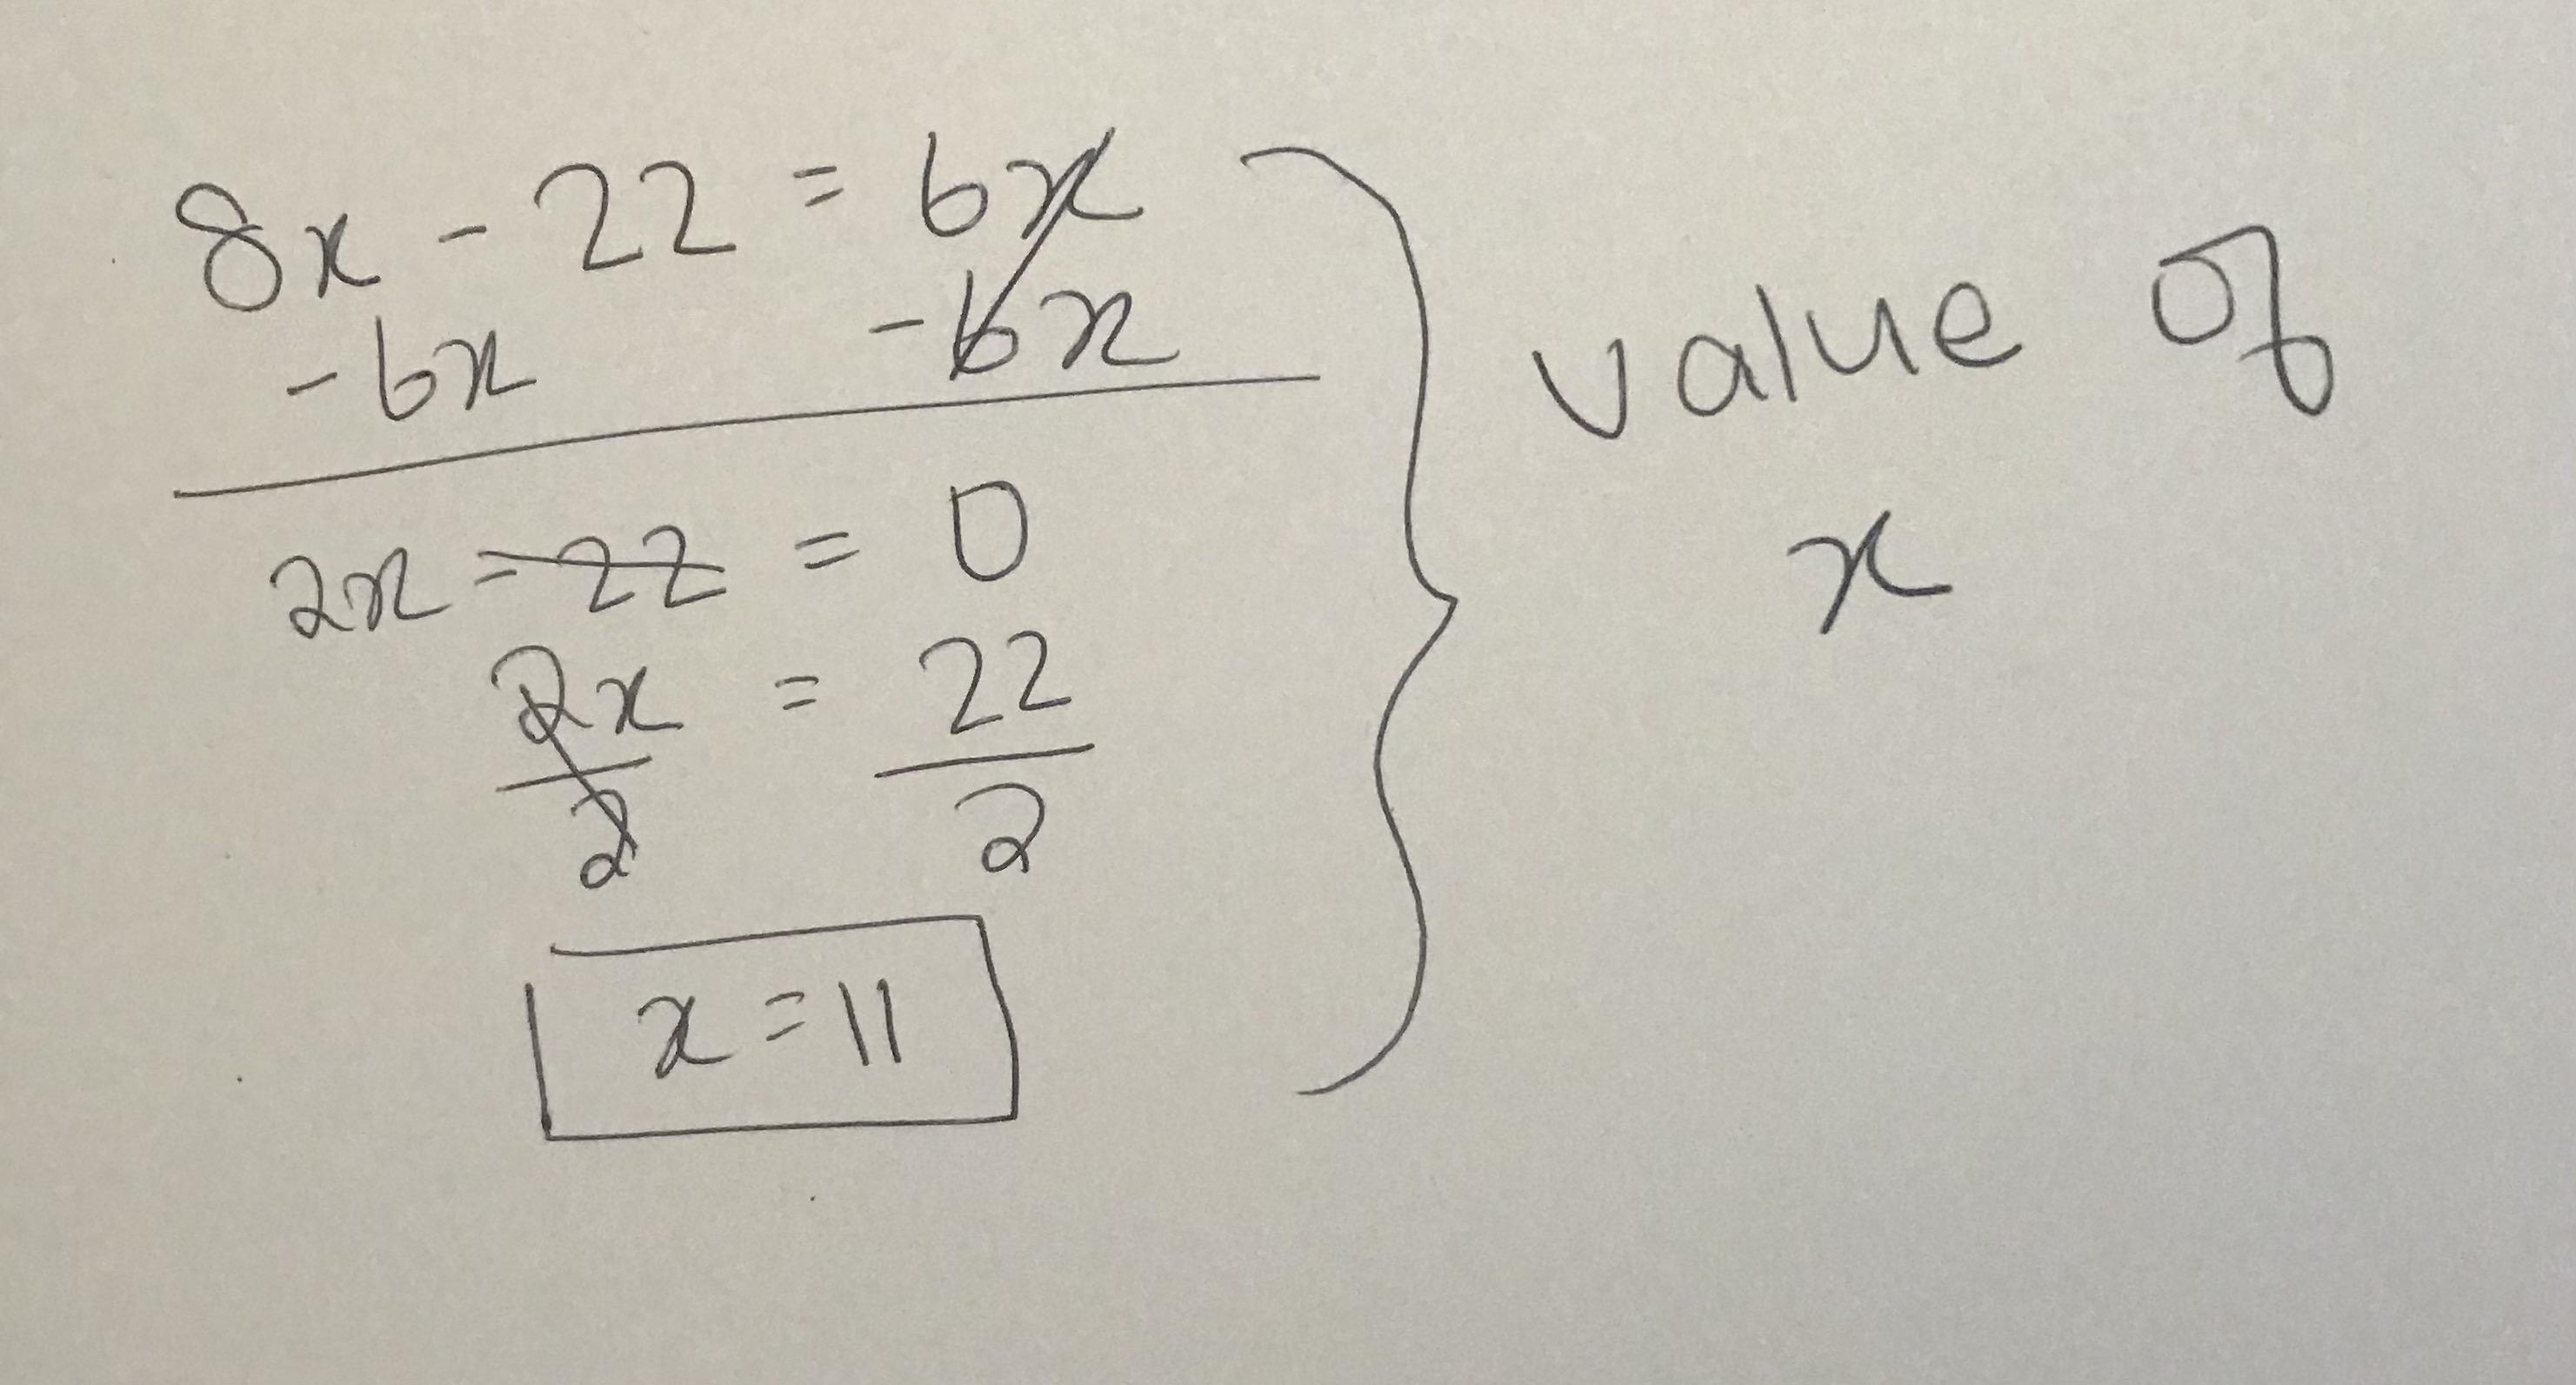 8x - 22 = 6x
-6x -6x
2x - 22 = 0
2x = 22
2 2
x = 11
value of
x